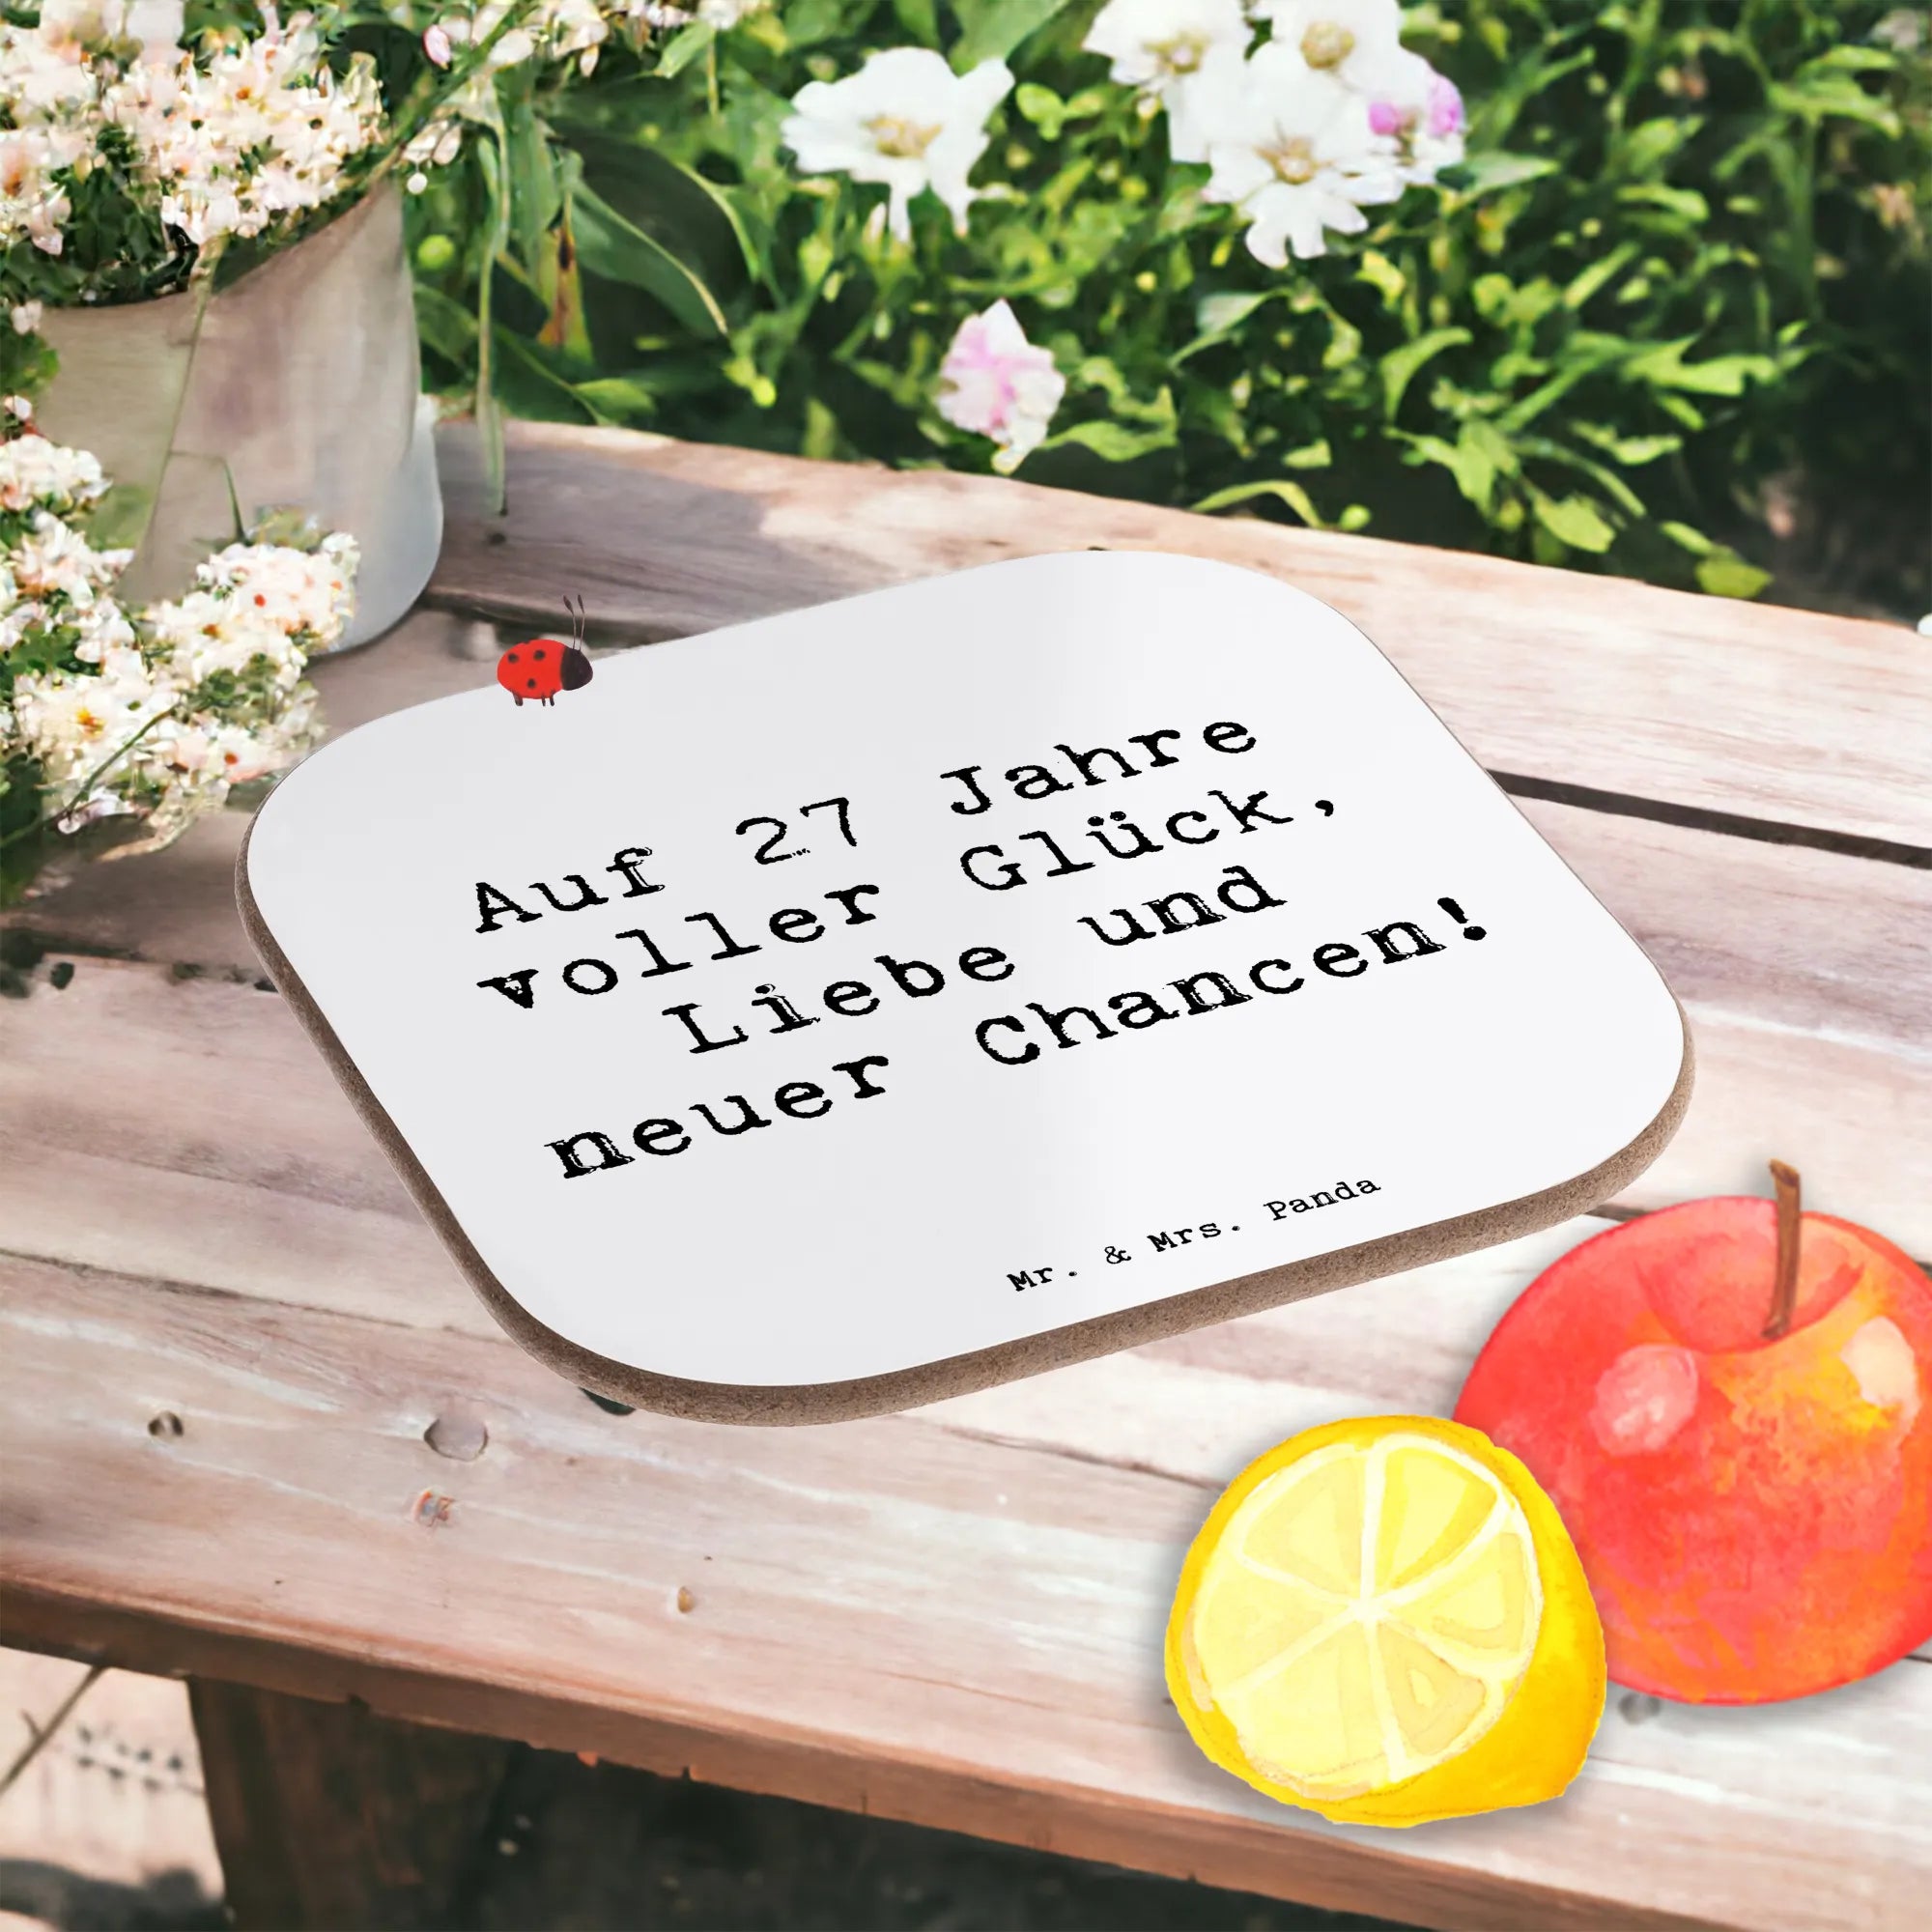 Auf 27 Jahre
voller Glück,
Liebe und
neuer Chancen!
Mr. & Mrs. Panda